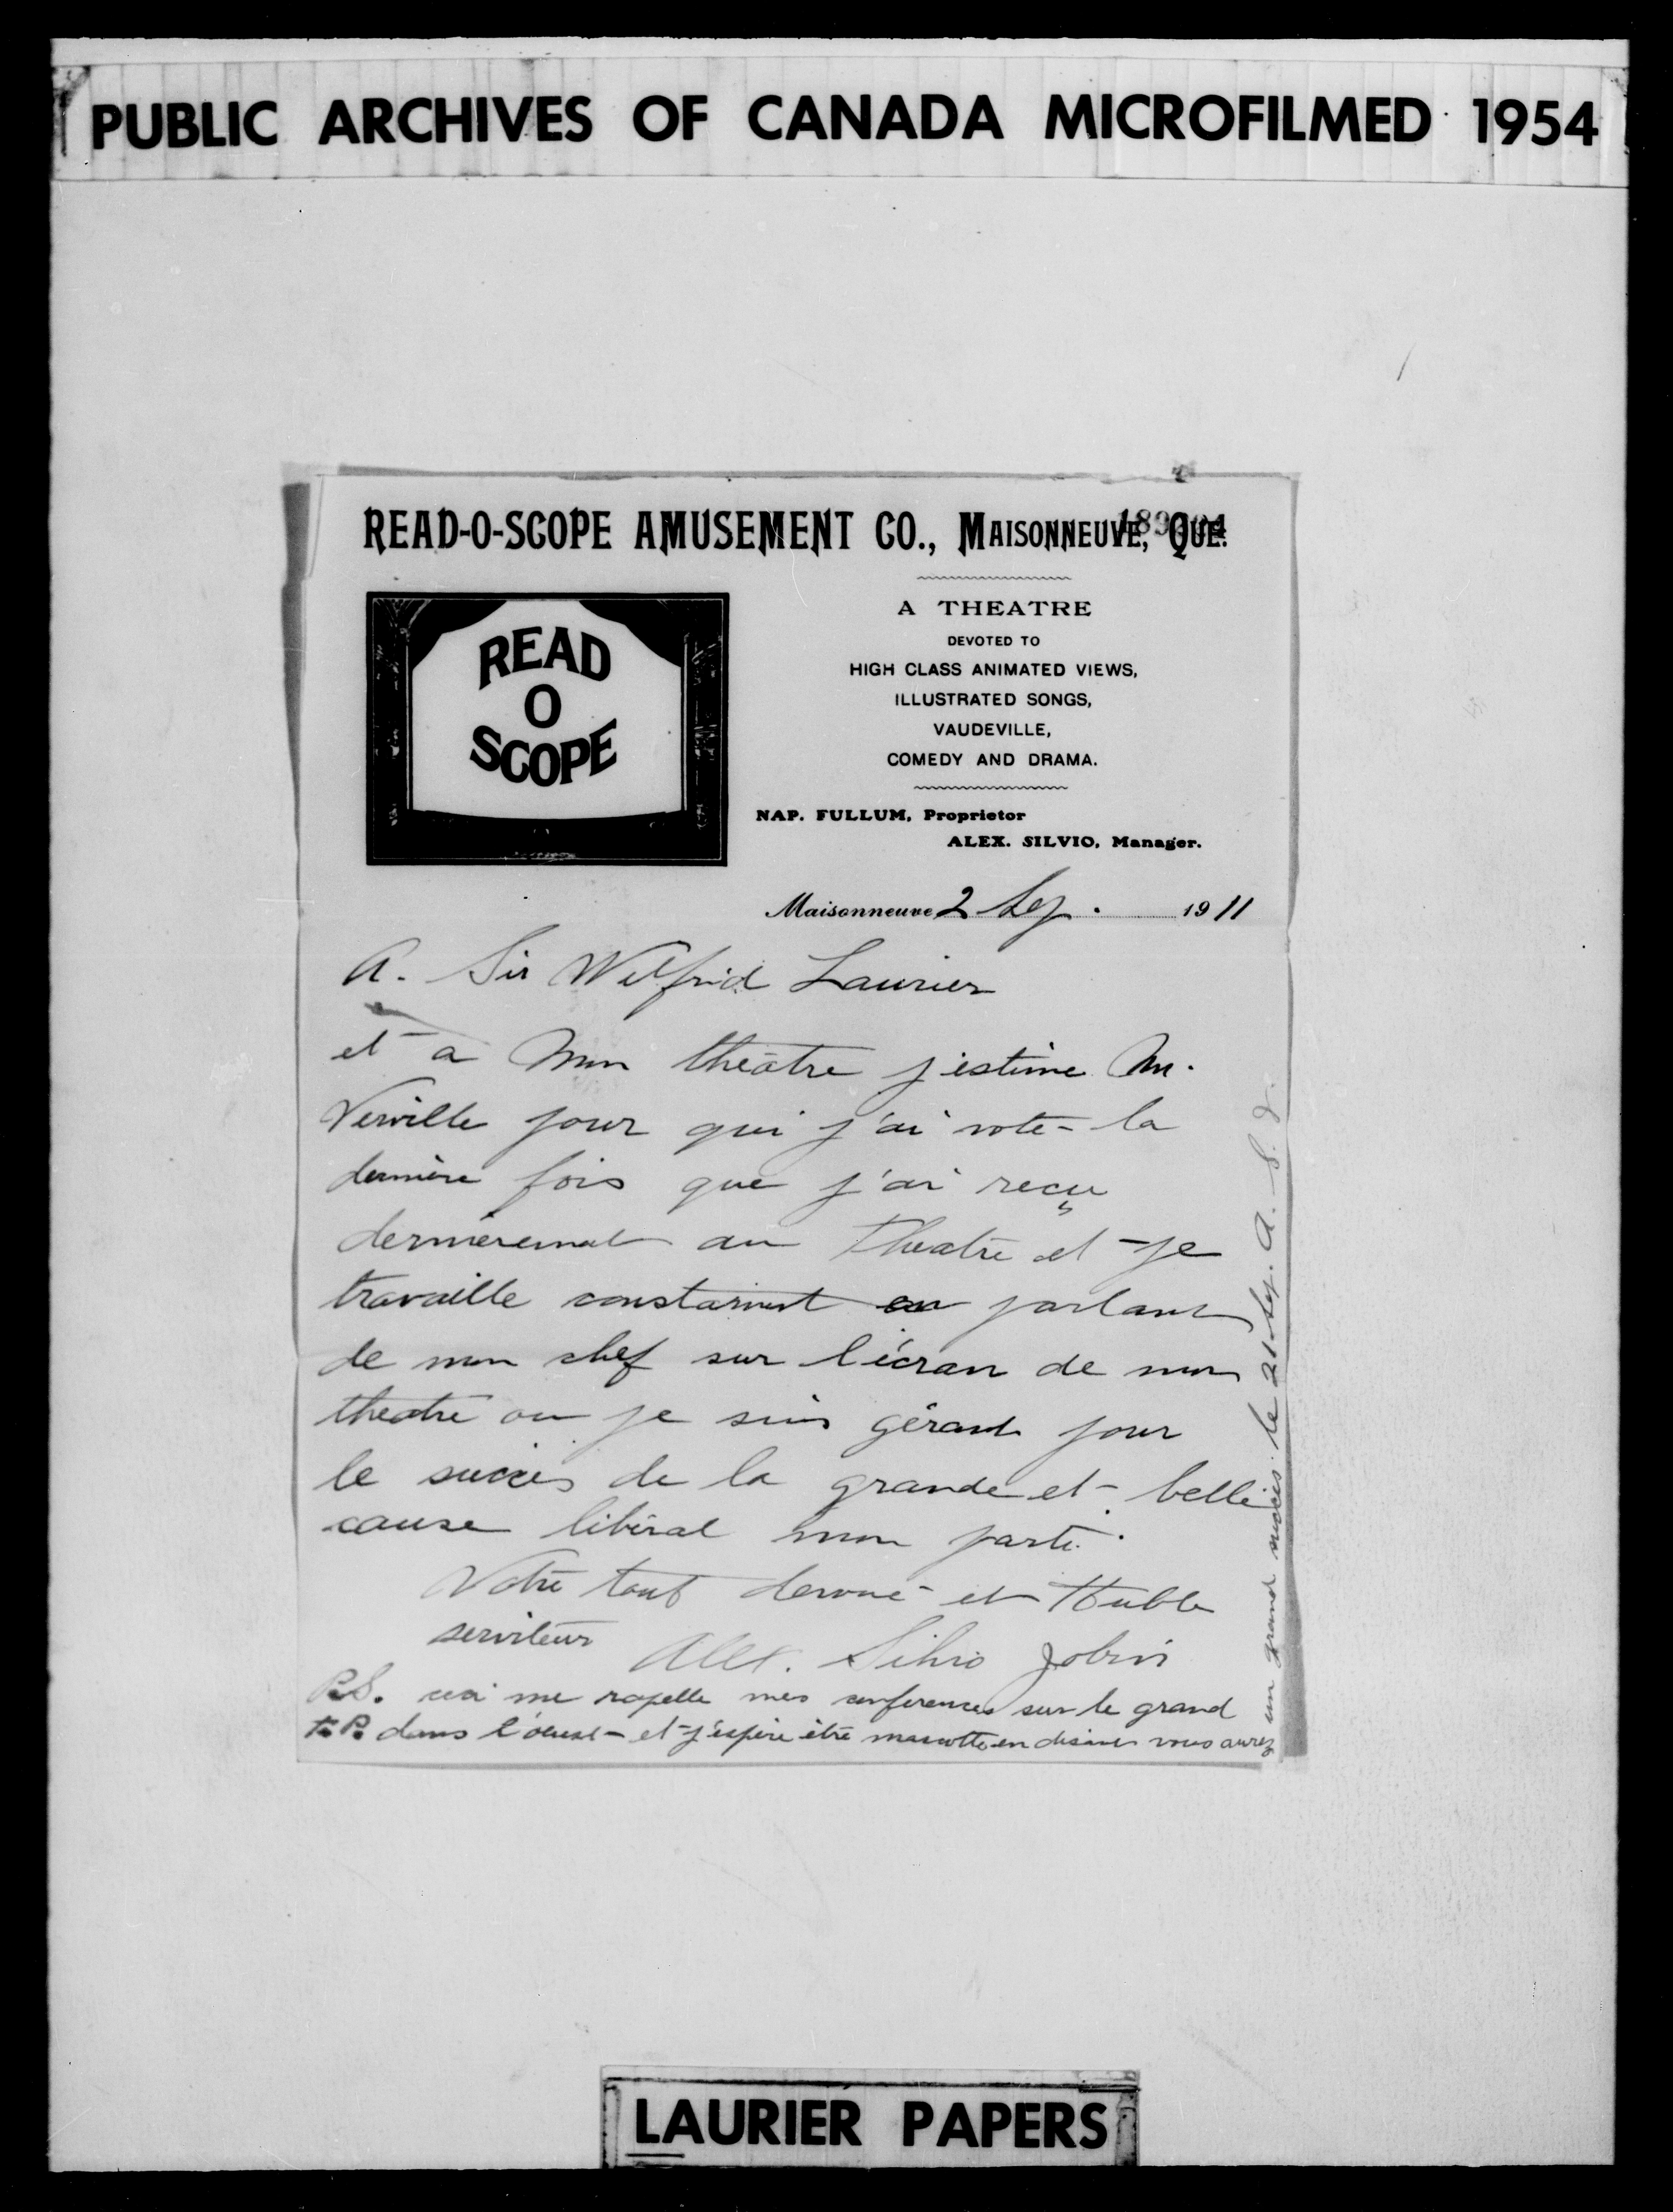 PUBLIC ARCHIVES OF CANADA MICROFILMED 1954
READ-O-SCOPE AMUSEMENT CO., MAISONNEUVE, QUE.
READ
O
SCOPE
A THEATRE
DEVOTED TO
HIGH CLASS ANIMATED VIEWS,
ILLUSTRATED SONGS,
VAUDEVILLE,
COMEDY AND DRAMA.
NAP. FULLUM, Proprietor
ALEX. SILVIO, Manager.
Maisonneuve 2 Sep. 1911
A. Sir Wilfrid Laurier
et a Mon théatre j'estime M.
Verville pour qui j'ai voté la
dernière fois que j'ai reçu
dernièremet au Theatre et je
travaille constament en parlant
de mon chef sur l'écran de mon
theatre ou je suis gérant pour
le succès de la grande et belle
cause libéral mon parti.
Votre tout devoué et
serviteur Alex. Silvio Jobin
P.S. ceci me rapelle mes conferences sur le grand
T. P. dans l'ouest et j'éspère être mascotte en disant vous aurez
un grand succès le 21 Sep. A. S. J.
LAURIER PAPERS